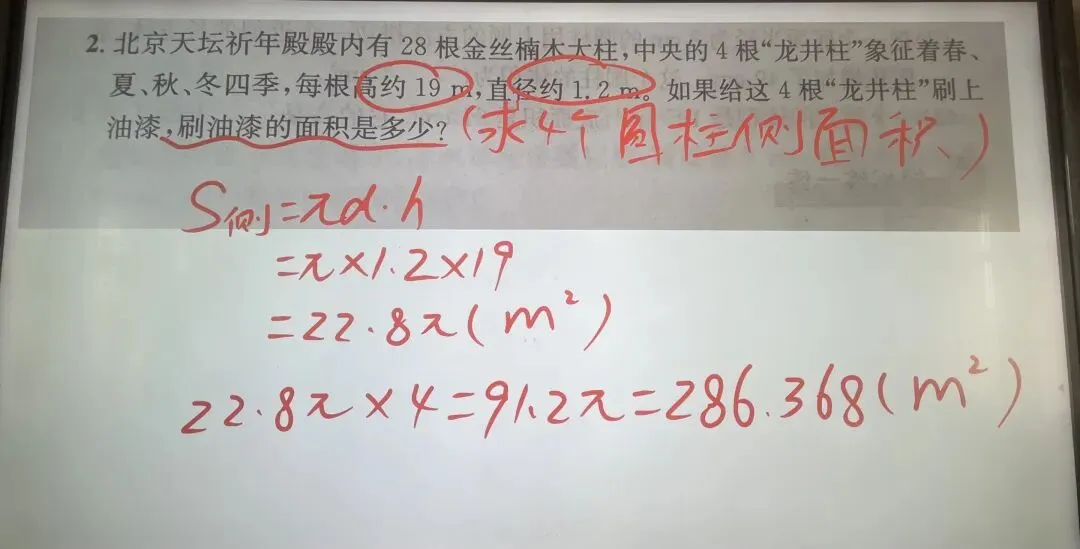 2. 北京天坛祈年殿殿内有 28 根金丝楠木大柱,中央的 4 根“龙井柱”象征着春、
夏、秋、冬四季,每根高约 19 m,直径约 1.2 m。如果给这 4 根“龙井柱”刷上
油漆,刷油漆的面积是多少?(求4个圆柱侧面积)
S侧=πd·h
=π×1.2×19
=22.8π(m²)
22.8π×4=91.2π=286.368(m²)